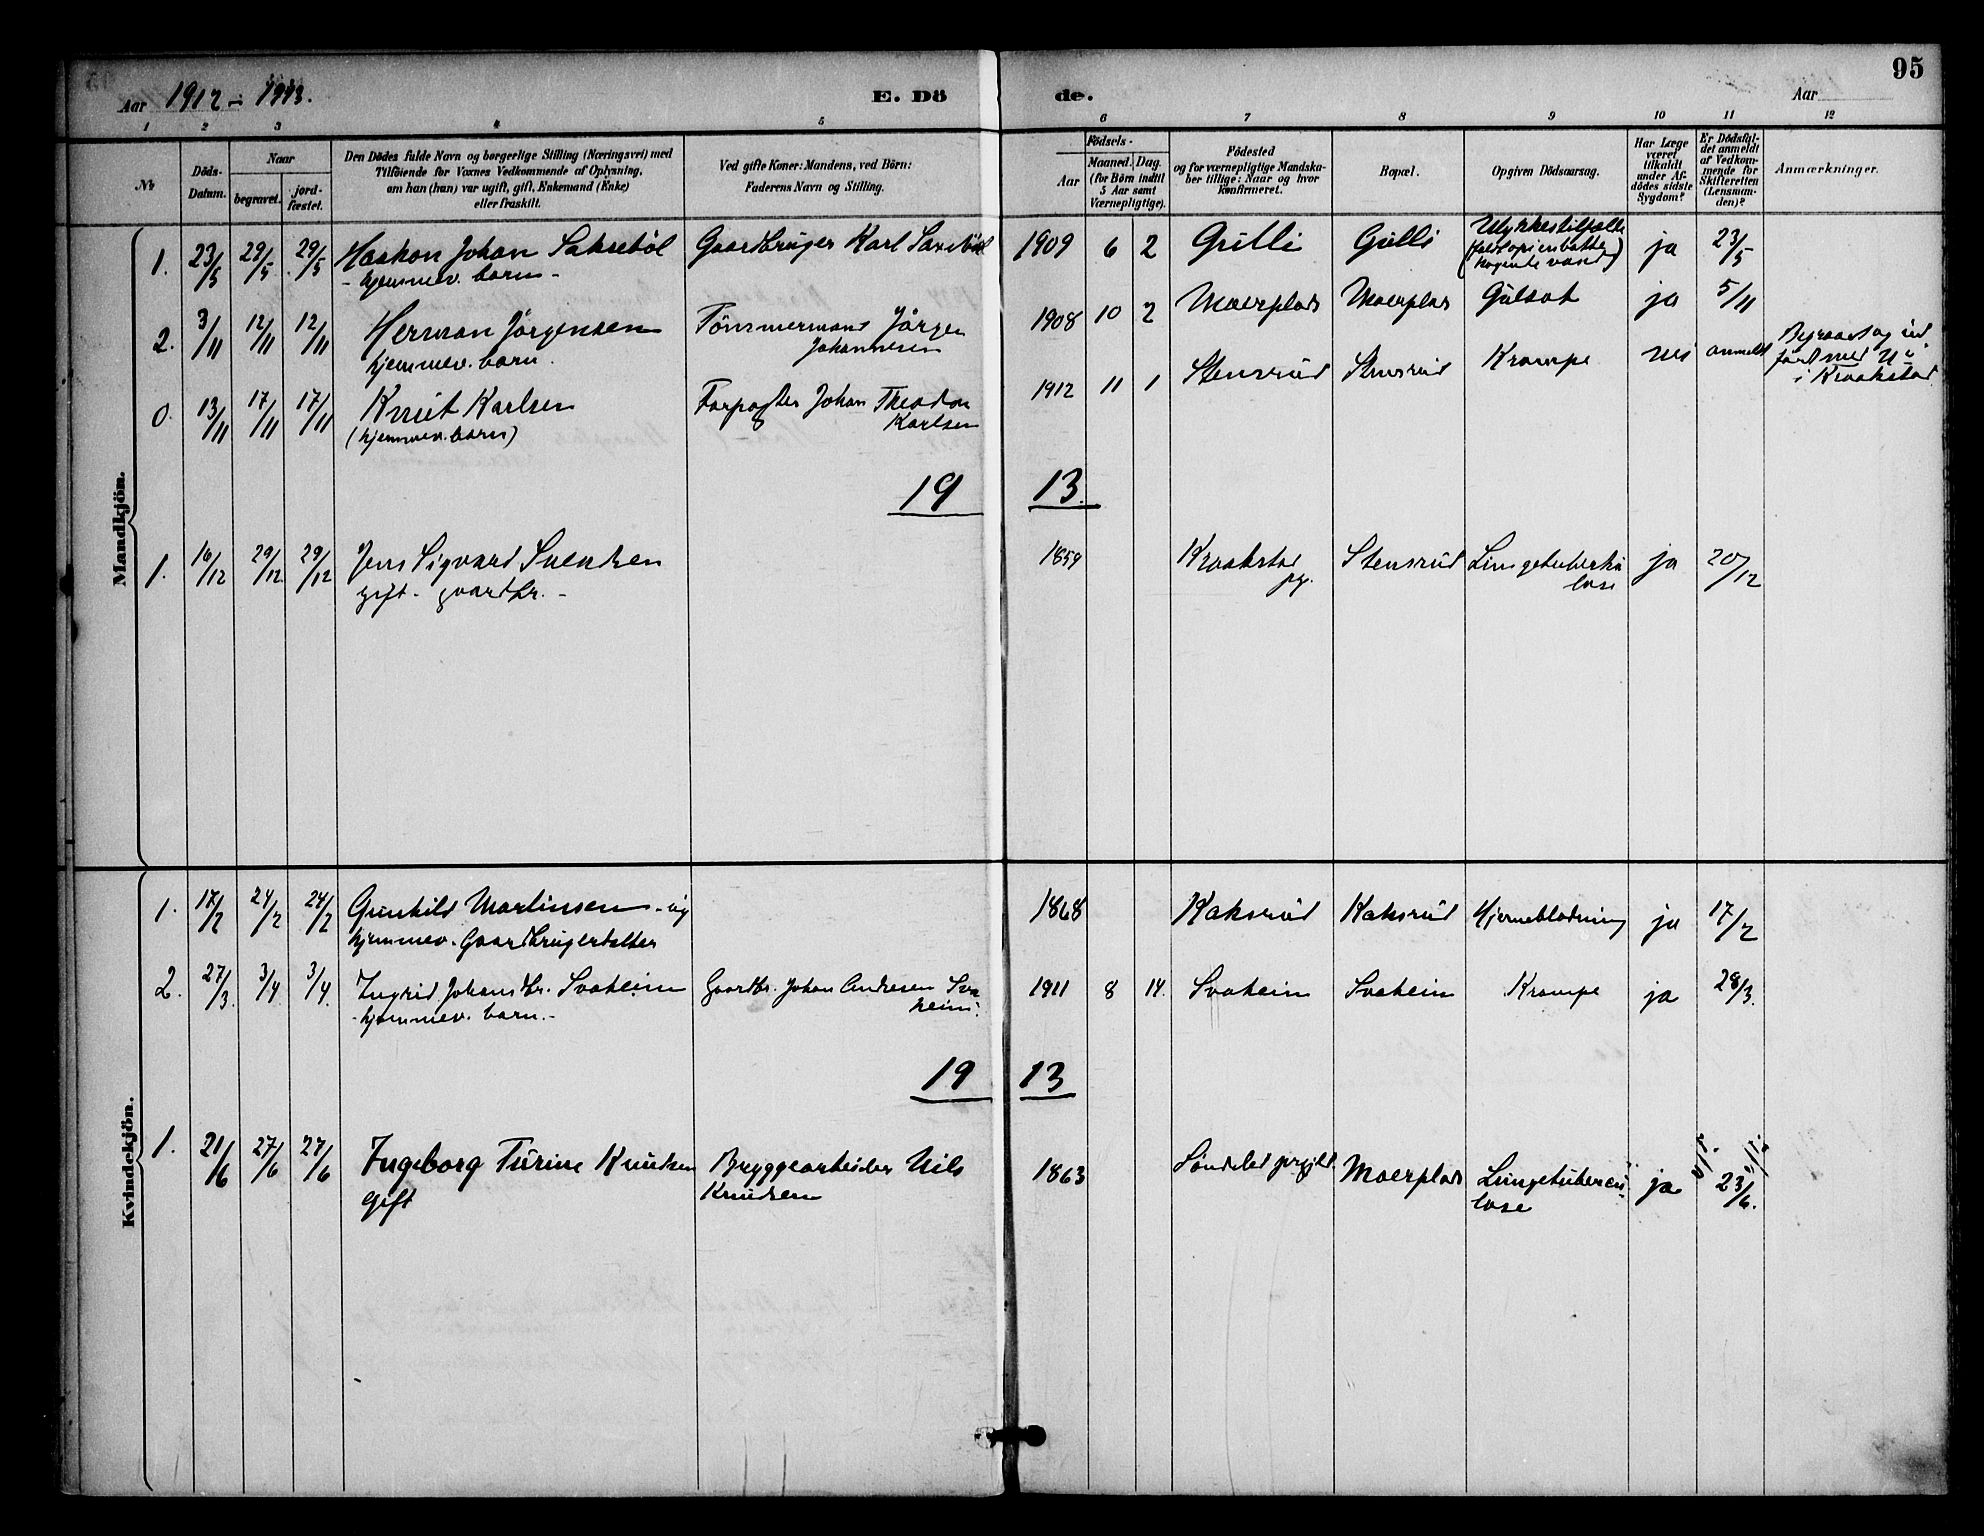 95
Aar 1912 - 1913.
E. Dö
de.
Aar
1 2 3 4 5 6 7 8 9 10 11 12
No
Döds-Datum.
Naar
begravet.
jord-fæstet.
Den Dödes fulde Navn og borgerlige Stilling (Næringsvei) med
Tilföiende for Voxnes Vedkommende af Oplysning,
om han (hun) var ugift, gift, Enkemand (Enke)
eller fraskilt.
Ved gifte Koner: Mandens, ved Börn:
Faderens Navn og Stilling.
Födsels-
Aar
Maaned. Dag.
(for Börn indtil
5 Aar samt
Værnepligtige).
Födested
og for værnepligtige Mandska-
ber tillige: Naar og hvor
konfirmeret.
Bopæl.
Opgiven Dödsaarsag.
Har Læge
været
tilkaldt
under Af-
dödes sidste
Sygdom?
Er Dödsfal-
det anmeldt
af Vedkom-
mende for
Skifteretten
(Lensman-
den)?
Anmærkninger.
Mandkjön.
1. 23/5 29/5 29/5 Haakon Johan Saksebøl Gaardbruger Karl 1909 6 2 Gulli Gulli Ulykkestilfælle ja 23/5
- hjemmev. barn - kogende vand)
2. 3/11 12/11 12/11 Herman Jørgensen Tömmermand Jørgen 1908 10 2 Moerplads Moerplads Gulsot ja 5/11
hjemmev. barn. Johannesen
0. 13/11 17/11 17/11 Knut Karlsen Forpagter Johan Theodor 1912 11 1 Stensrud Stensrud Krampe nei anmeldt
(hjemmev. barn) Karlsen
Begravet og ind-
ført med No
i Kraakstad
19 13.
1. 16/12 29/12 29/12 Jens Sigvard Svendsen 1859 Kraakstad Stensrud Lungetuberku ja 20/12
gift - gaardbr. - pg. lose
Kvindekjön.
1. 17/2 24/2 24/2 Gunhild Martinsen - ug 1868 Kaksrud Kaksrud Hjerneblødning ja 17/2
hjemmev. Gaardbrugerdatter
2. 27/3. 3/4. 3/4. Ingrid Johansdtr. Svaheim Gaardbr. Johan Andresen Sva 1911 8 14. Svaheim Svaheim Krampe ja 28/3.
- hjemmev. barn. - heim.
19 13
1. 21/6 27/6 27/6 Ingeborg Turine Knudsen Bryggearbeider Nils 1863 Søndeled prgjld. Moerplads Lungetubercu ja 23/6.
Gift Knudsen lose